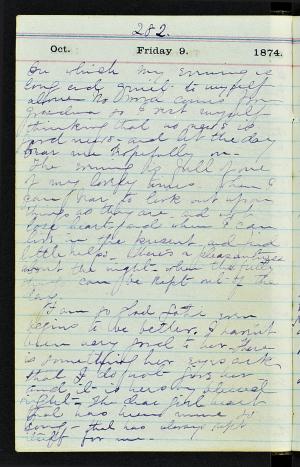 282.
Oct. Friday 9. 1874.
On which my evening is
long and quiet to myself
alone. No word comes from
Grandma so I rest myself
thinking that no news is
good news - and let the day
bear me hopefully on.
The evening is full of one
of my lonely times when I
can bear to look out upon
things as they are - and not
lose heart, and when I can
live in the present and find
little helps. There's a pleasantness
about the night - when the
can be kept out of the
day.
I am so glad
begins to be better. I haven't
been very good to her. There
is something her eyes ask
that I do not give her
and it is hers by
right - The dear girl heart
that has been mine so
long - that has always kept
itself for me.